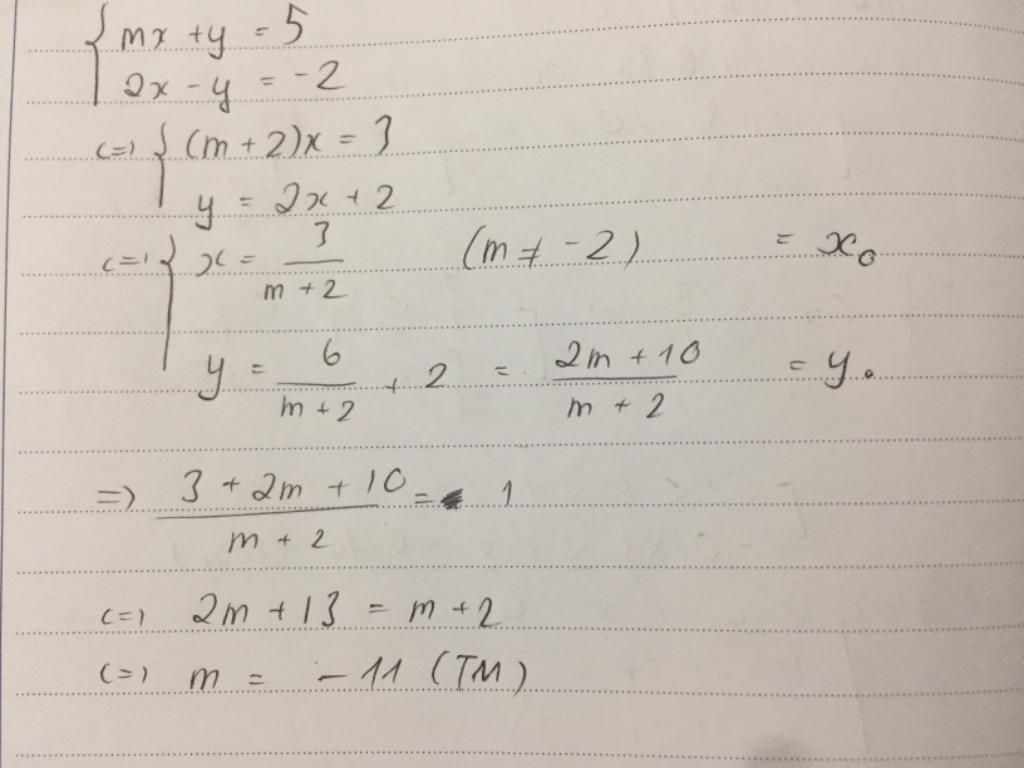 { mx + y = 5
2x - y = -2
<=> { (m + 2)x = 3
y = 2x + 2
<=> { x = 3/(m + 2) (m ≠ -2) = x₀
y = 6/(m + 2) + 2 = (2m + 10)/(m + 2) = y₀
=> (3 + 2m + 10)/(m + 2) = 1
<=> 2m + 13 = m + 2
<=> m = -11 (TM)